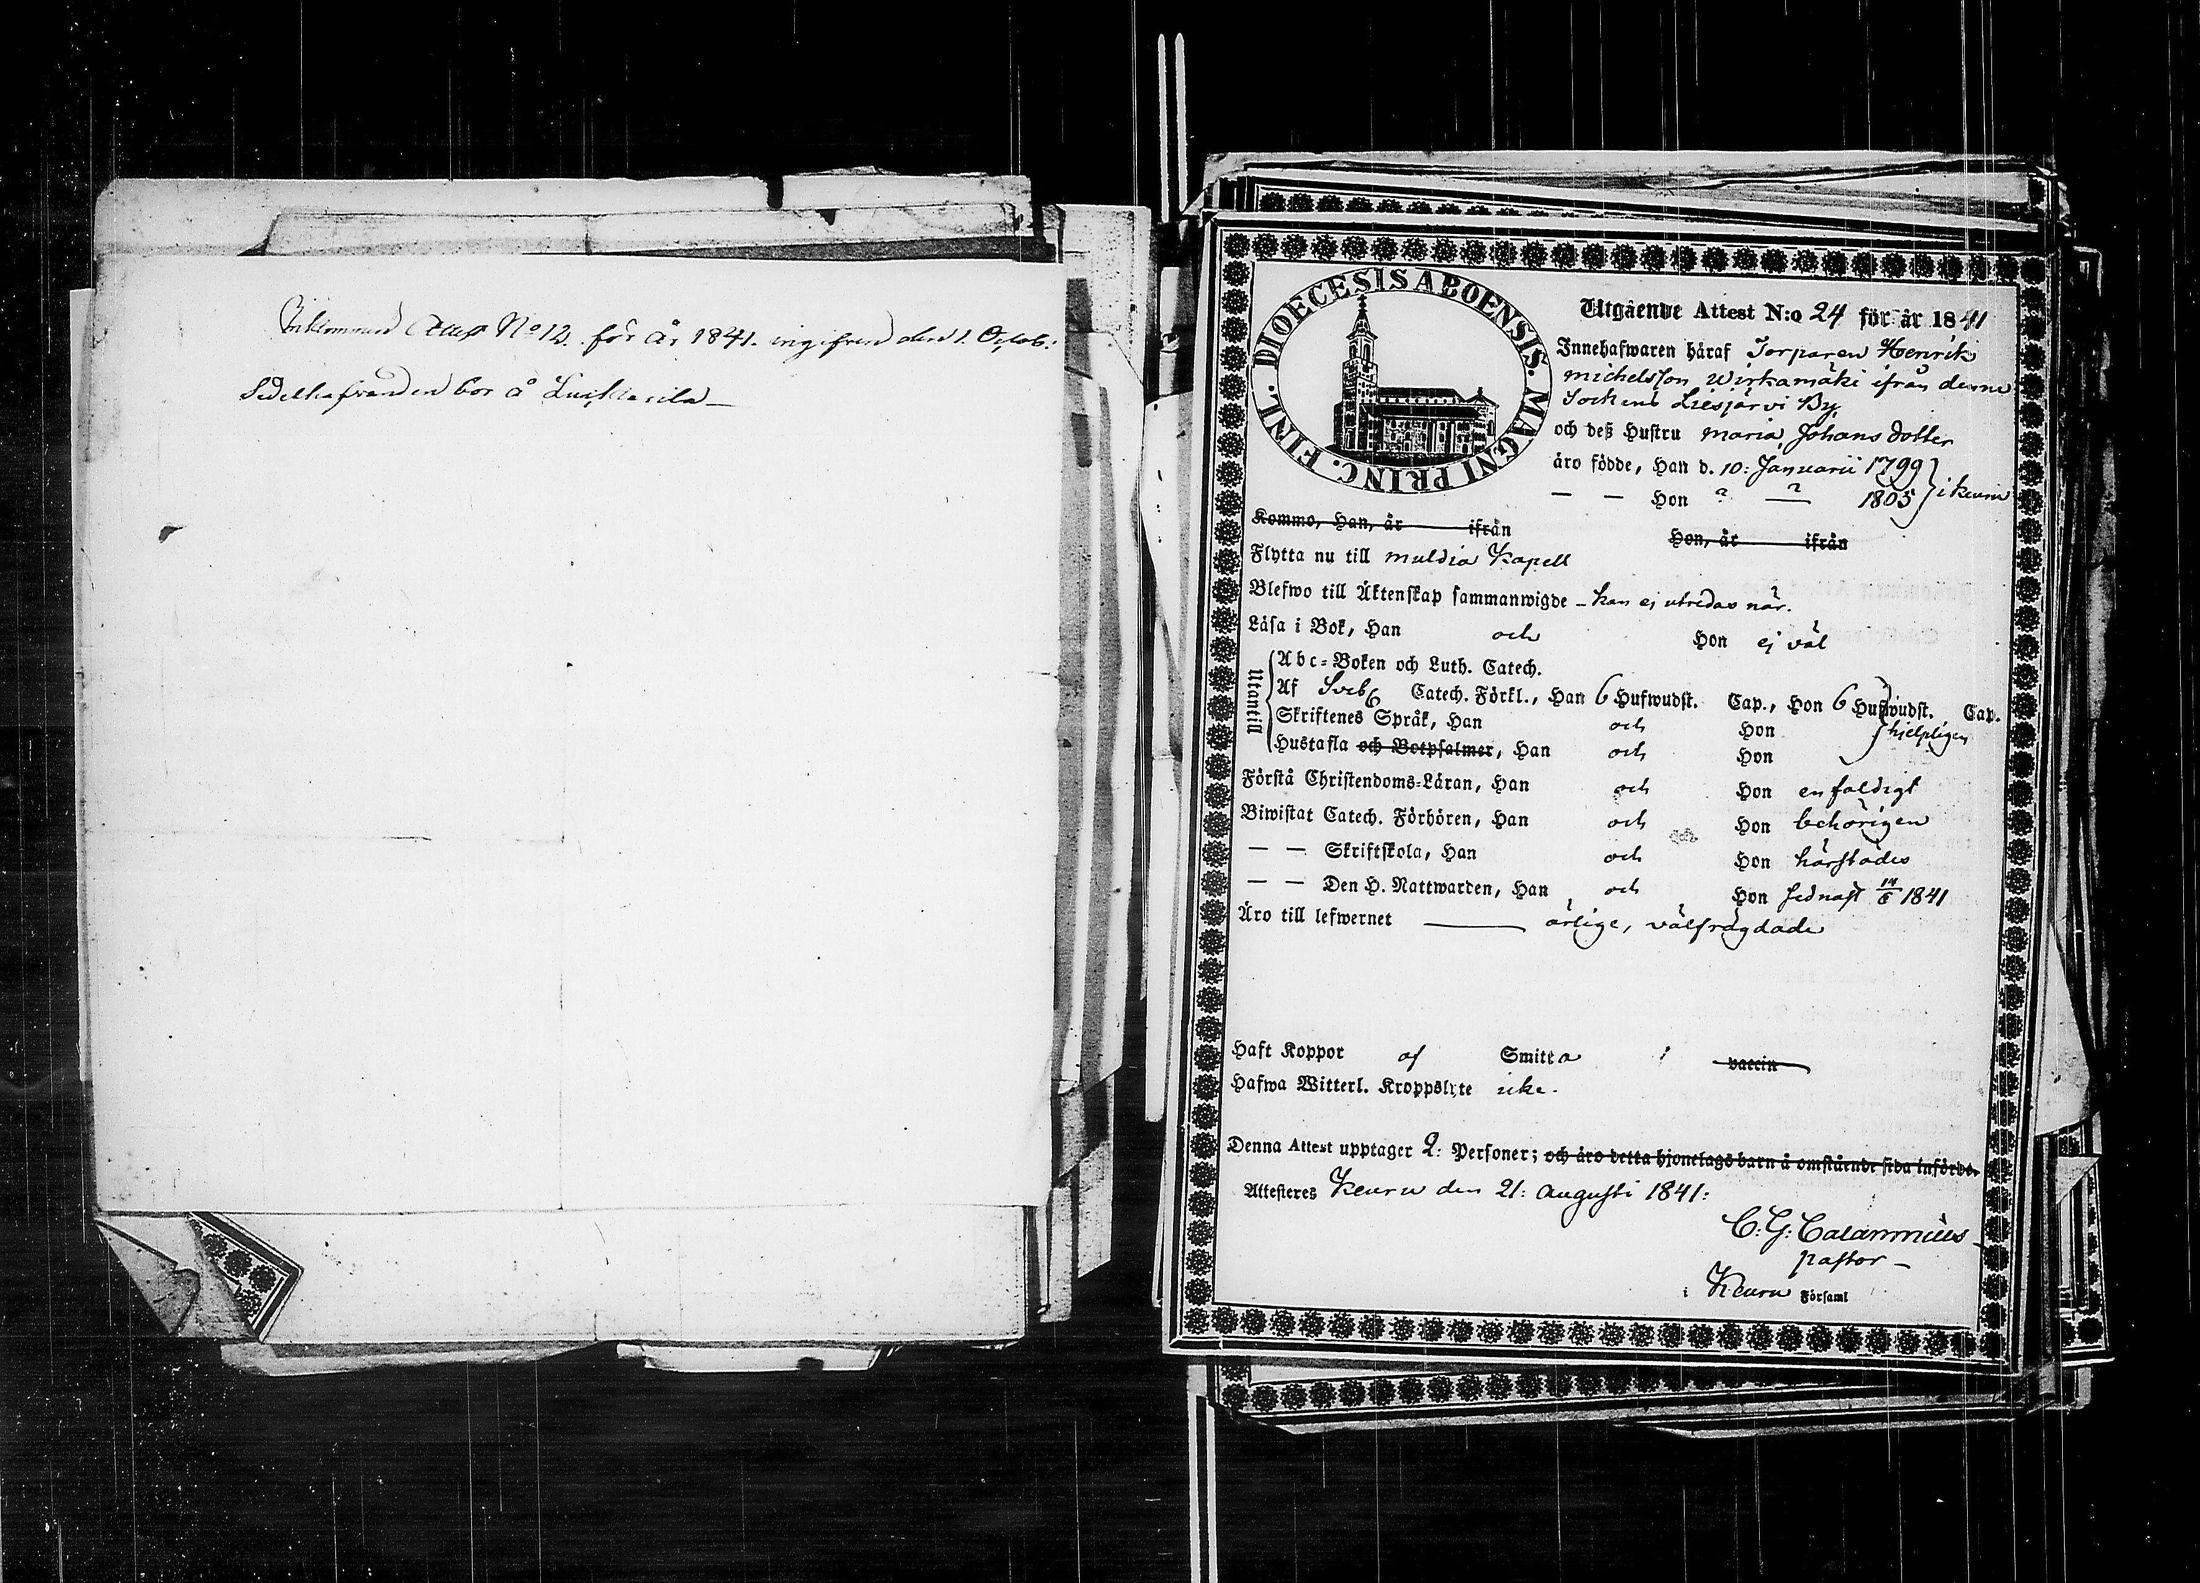 Inkommen Attest No 12. för år 1841. ingifven den 1. Octob:
Sedelhafvanden bor å
DIOECESIS ABOENSIS. MAGNI PRINC. FINL.
Utgående Attest N:o 24 för år 1841
Innehafwaren häraf Torparen Henrik
Michelsson Wirkamäki ifrån denne
Sockens Liesjärvi By
och deß Hustru Maria Johansdotter
äro födde, Han d. 10: Januarii 1799 } i Keuru
— — Hon ? — ? 1805
Kommo, Han, år ifrån Hon, år ifrån
Flytta nu till Muldia Kapell
Blefwo till Äktenskap sammanwigde – kan ej utredas när.
Läsa i Bok, Han och Hon ej väl
Utantill
Abc-Boken och Luth. Catech.
Af Sveb Catech. Förkl., Han 6 Hufwudst. Cap., Hon 6 Hufwudst. Cap.
Skriftenes Språk, Han och Hon } hjelpligen
Hustafla och Botpsalmer, Han och Hon
Förstå Christendoms-Läran, Han och Hon enfaldigt
Biwistat Catech. Förhören, Han och Hon behörigen
— — Skriftskola, Han och Hon härstädes
— — Den H. Nattwarden, Han och Hon sednast 14/6 1841
Äro till lefwernet — ärlige, välfrägdade
Haft Koppor af Smitta vaccin
Hafwa Witterl. Kroppslyte icke.
Denna Attest upptager 2: Personer; och äro detta hjonelags barn å omstående sida införde.
Attesteres Keuru den 21: Augusti 1841:
C: G: Calamnius
Pastor –
i Keuru Församl